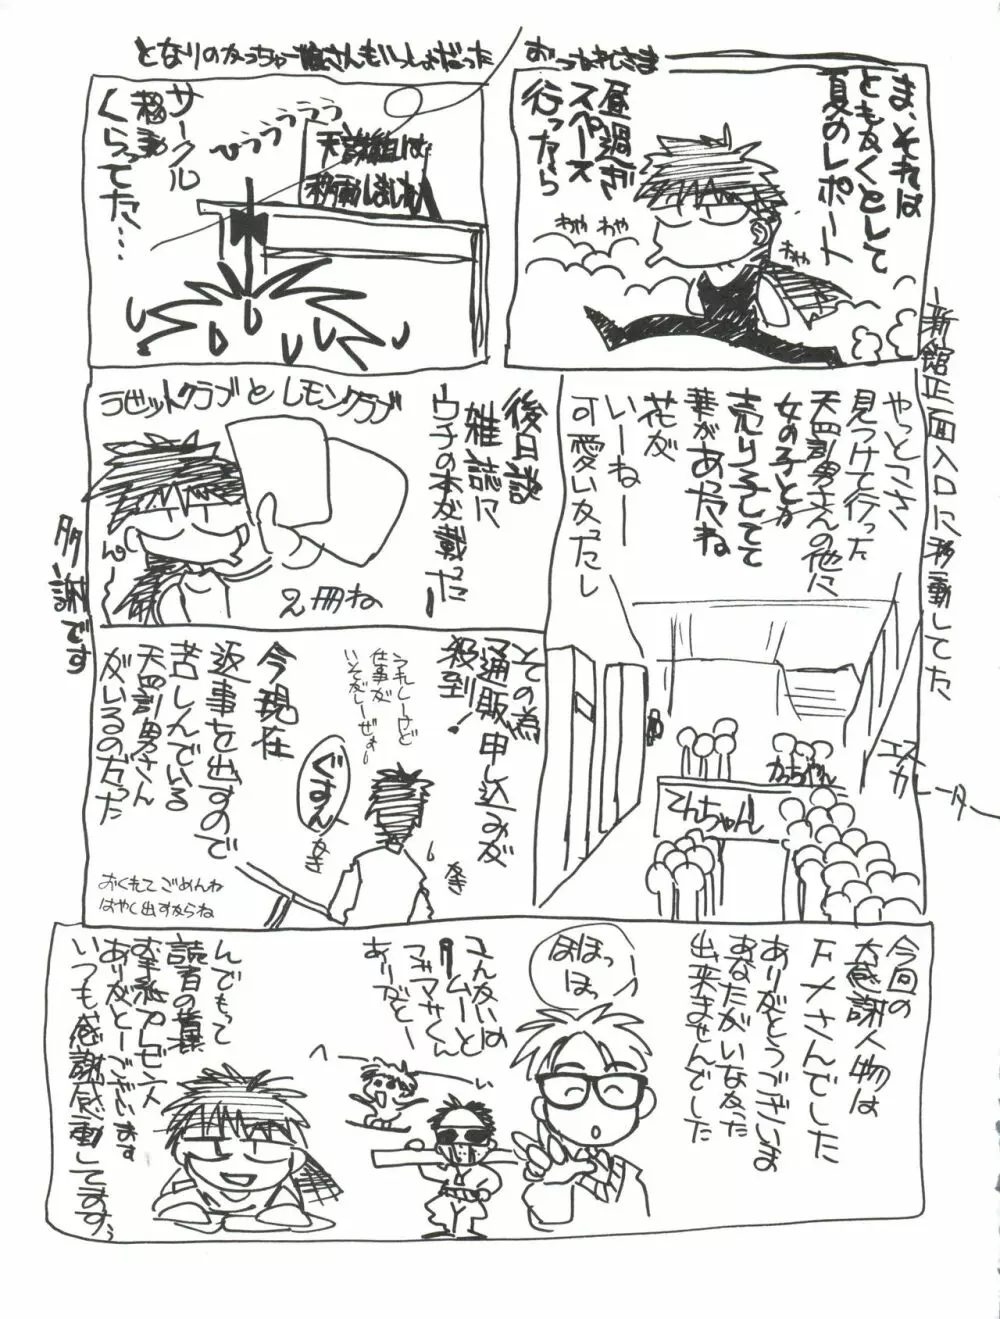 ま、それは
ともかくとして
夏のレポート
昼過ぎ
スペース
行ったら
わや わや
わや
おつかれさま
となりのかっちゃご娘さんもいっしょだった
サークル
移動
くらってた…
ひゅううううう
天誅組は
移動しました
新館正面入口に移動してた
やっとこさ
見つけて行った
天四訓男さんの他に
女の子とか
売り子してて
華があったね
花が
いーねー
可愛いかったし
エスカレーター
かっちゃん
てんちゃん
後日談
雑誌に
ウチの本が載ったー
ラビットクラブとレモンクラブ
2冊ね
多謝です
その為
通販申し込みが
殺到!
うれしーけど
仕事が
いそがしーぜぇー
今現在
返事を出すので
苦しんでいる
天四訓男さん
がいるのだった
ぐすん
なき
なき
おくれてごめんね
はやく出すからね
今回の
大感謝人物は
F×さんでした
ありがとうございま
あなたがいなかった
出来ませんでした
ほほっ
ほっ
こんかいの
タームーと
マサくん
ありがとー
んでもって
読者の皆様
お手紙プレゼント
ありがとーございます
いつも感謝感動してますぅ